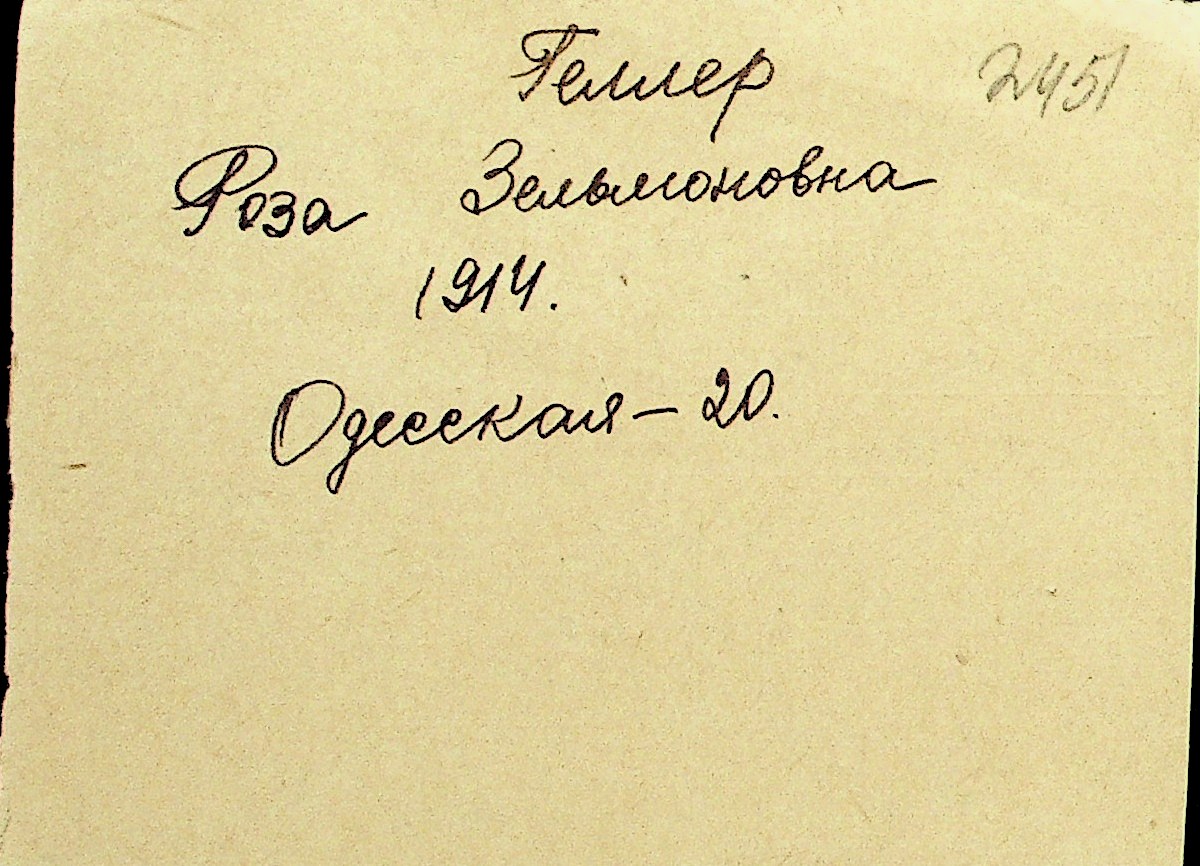 Геллер 2451
Роза Зельмоновна
1914.
Одесская — 20.